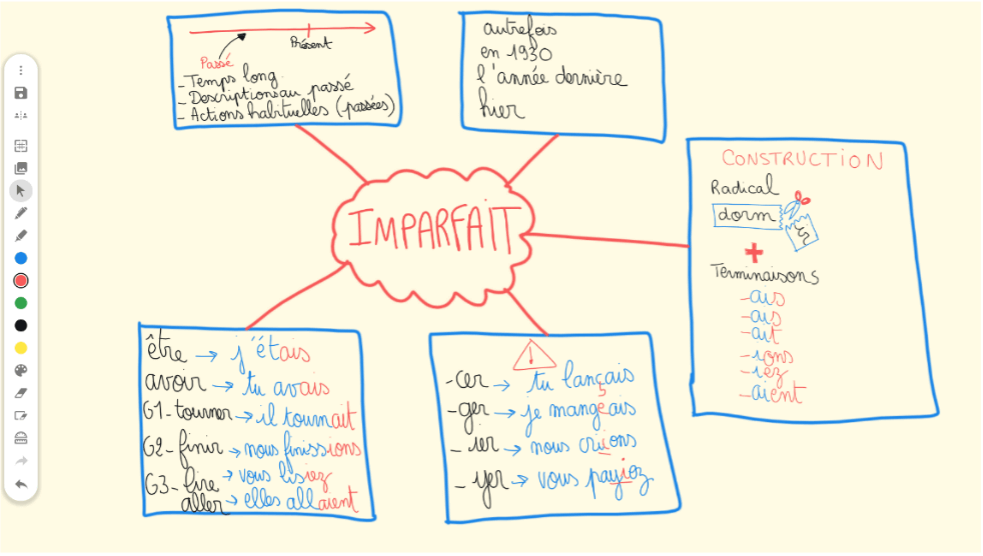 Présent
Passé
- Temps long
- Descriptions au passé
- Actions habituelles (passées)
autrefois
en 1930
l'année dernière
hier
IMPARFAIT
CONSTRUCTION
Radical
dorm
ir
+
Terminaisons
-ais
-ais
-ait
-ions
-iez
-aient
être → j'étais
avoir → tu avais
G1-tourner → il tournait
G2-finir → nous finissions
G3-lire → vous lisiez
aller → elles allaient
!
-cer → tu lançais
-ger → je mangeais
-ier → nous criions
-yer → vous payiez